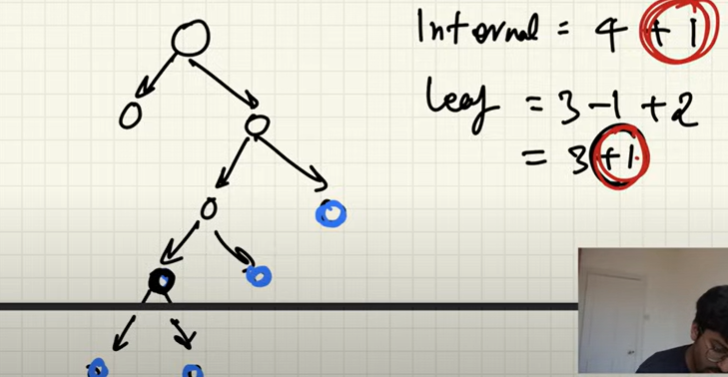 Internal = 4 + 1
Leaf = 3 - 1 + 2
= 3 + 1